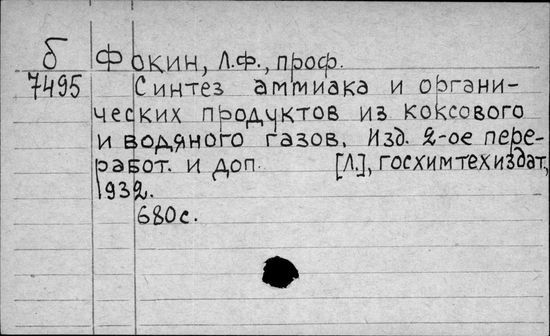 б Фокин, Л.Ф., проф.
7495 Синтез аммиака и органи-
ческих продуктов из коксового
и водяного газов. Изд. 2-ое пере-
работ. и доп. [Л.], госхимтехиздат,
1932.
680 с.